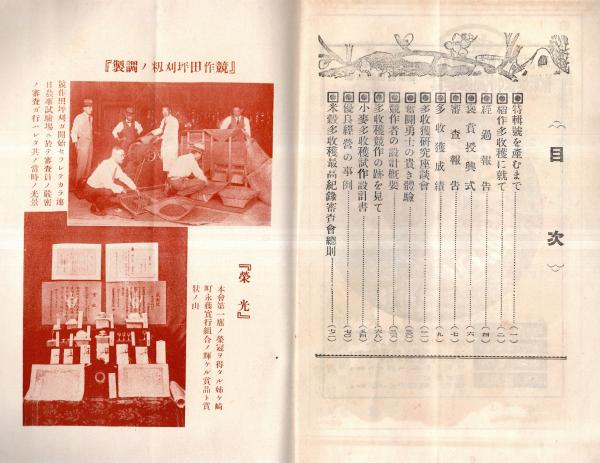 目次
特輯號を產むまで…(一)
稻作多收穫に就て…(二)
經過報告…(四)
褒賞授與式…(五)
審査報告…(七)
多收穫成績
多收穫研究座談會
奮鬪勇士の貴き體驗
競作者の設計概要
多收穫競作の跡を見て
小麥多收穫試作設計書
優良經營の事例
米穀多收穫最高紀錄審査會總則
『競作田坪刈籾ノ調製』
競作田坪刈ガ開始セラレテカラ連
日農事試驗場ニ於テ審査員ノ嚴密
ノ審査ガ行ハレタ其ノ當時ノ光景
『榮光』
本會第一席ノ榮冠ヲ得タル姉ケ崎
町永藤實行組合ノ輝ケル賞品ト賞
狀ノ山